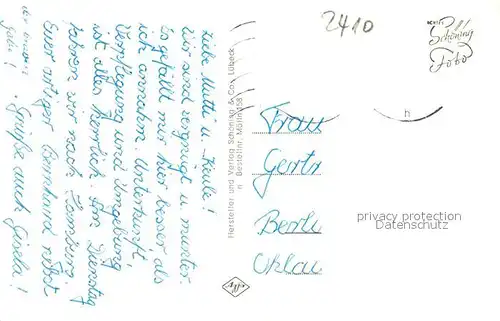 Liebe Mutti u. Heule!
wir sind vergnügt u. munter.
Es gefällt mir hier besser als
ich annahm. Unterkunft,
Verpflegung und Umgebung
ist alles herrlich. Am Dienstag
fahren wir nach
Euer artiger Bernhard nebst
Grüße auch Gisela!
Hersteller und Verlag Schöning & Co., Lübeck
n Bestellnr. Mölln 358
Agfa
2410
ECHTES
Schöning
Foto
n
Frau
Gertr
Berli
Ohlau
privacy protection
Datenschutz